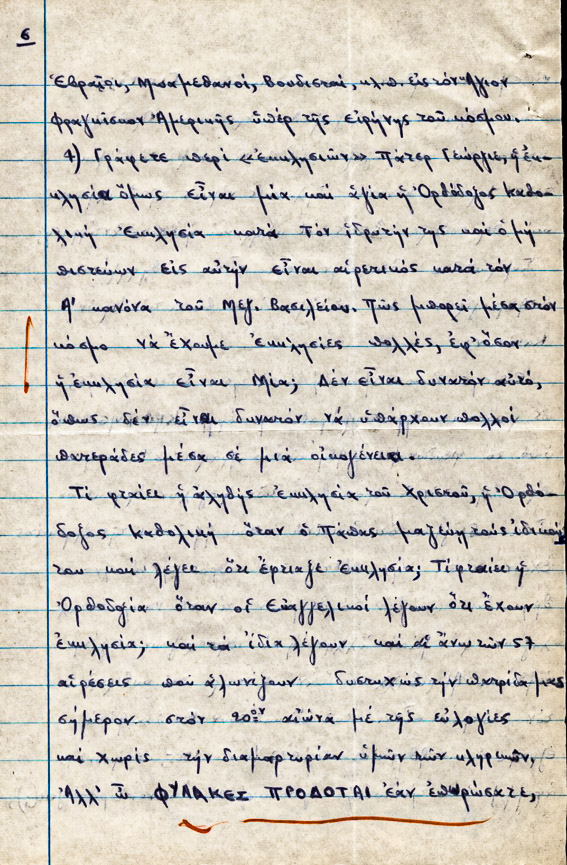 6
Ἑβραῖοι, Μωαμεθανοί, Βουδισταί, κλ.π. εἰς τόν Ἅγιον
Φραγκίσκον Ἀμερικῆς ὑπέρ τῆς εἰρήνης τοῦ κόσμου.
4) Γράφετε περί «ἐκκλησιῶν» Πάτερ Γεώργιε, ἡ ἐκ-
κλησία ὅμως εἶναι μία καί ἁγία ἡ Ὀρθόδοξος Καθο-
λική Ἐκκλησία κατά τόν ἱδρυτήν της καί ὁ μή
πιστεύων εἰς αὐτήν εἶναι αἱρετικός κατά τόν
Α' κανόνα τοῦ Μεγ. Βασιλείου. Πῶς μπορεῖ μέσα στόν
κόσμο νά ἔχουμε ἐκκλησίες πολλές, ἐφ' ὅσον
ἡ ἐκκλησία εἶναι Μία; Δέν εἶναι δυνατόν αὐτό,
ὅπως δέν εἶναι δυνατόν νά ὑπάρχουν πολλοί
πατεράδες μέσα σέ μιά οἰκογένεια.
Τί φταίει ἡ ἀληθής ἐκκλησία τοῦ Χριστοῦ, ἡ Ὀρθό-
δοξος Καθολική ὅταν ὁ Πάπας μαζεύη τούς ἰδικούς
του καί λέγει ὅτι ἔφτιαξε ἐκκλησία; Τί φταίει ἡ
Ὀρθοδοξία ὅταν οἱ Εὐαγγελικοί λέγουν ὅτι ἔχουν
ἐκκλησία; καί τά ἴδια λέγουν καί αἱ ἄνω τῶν 57
αἱρέσεις πού ἁλωνίζουν δυστυχῶς τήν πατρίδα μας
σήμερον στόν 20ον αἰῶνα μέ τῆς εὐλογίες
καί χωρίς τήν διαμαρτυρίαν ὑμῶν τῶν κληρικῶν,
Ἀλλ' ὦ ΦΥΛΑΚΕΣ ΠΡΟΔΟΤΑΙ ἐάν ἐπωρώσατε,